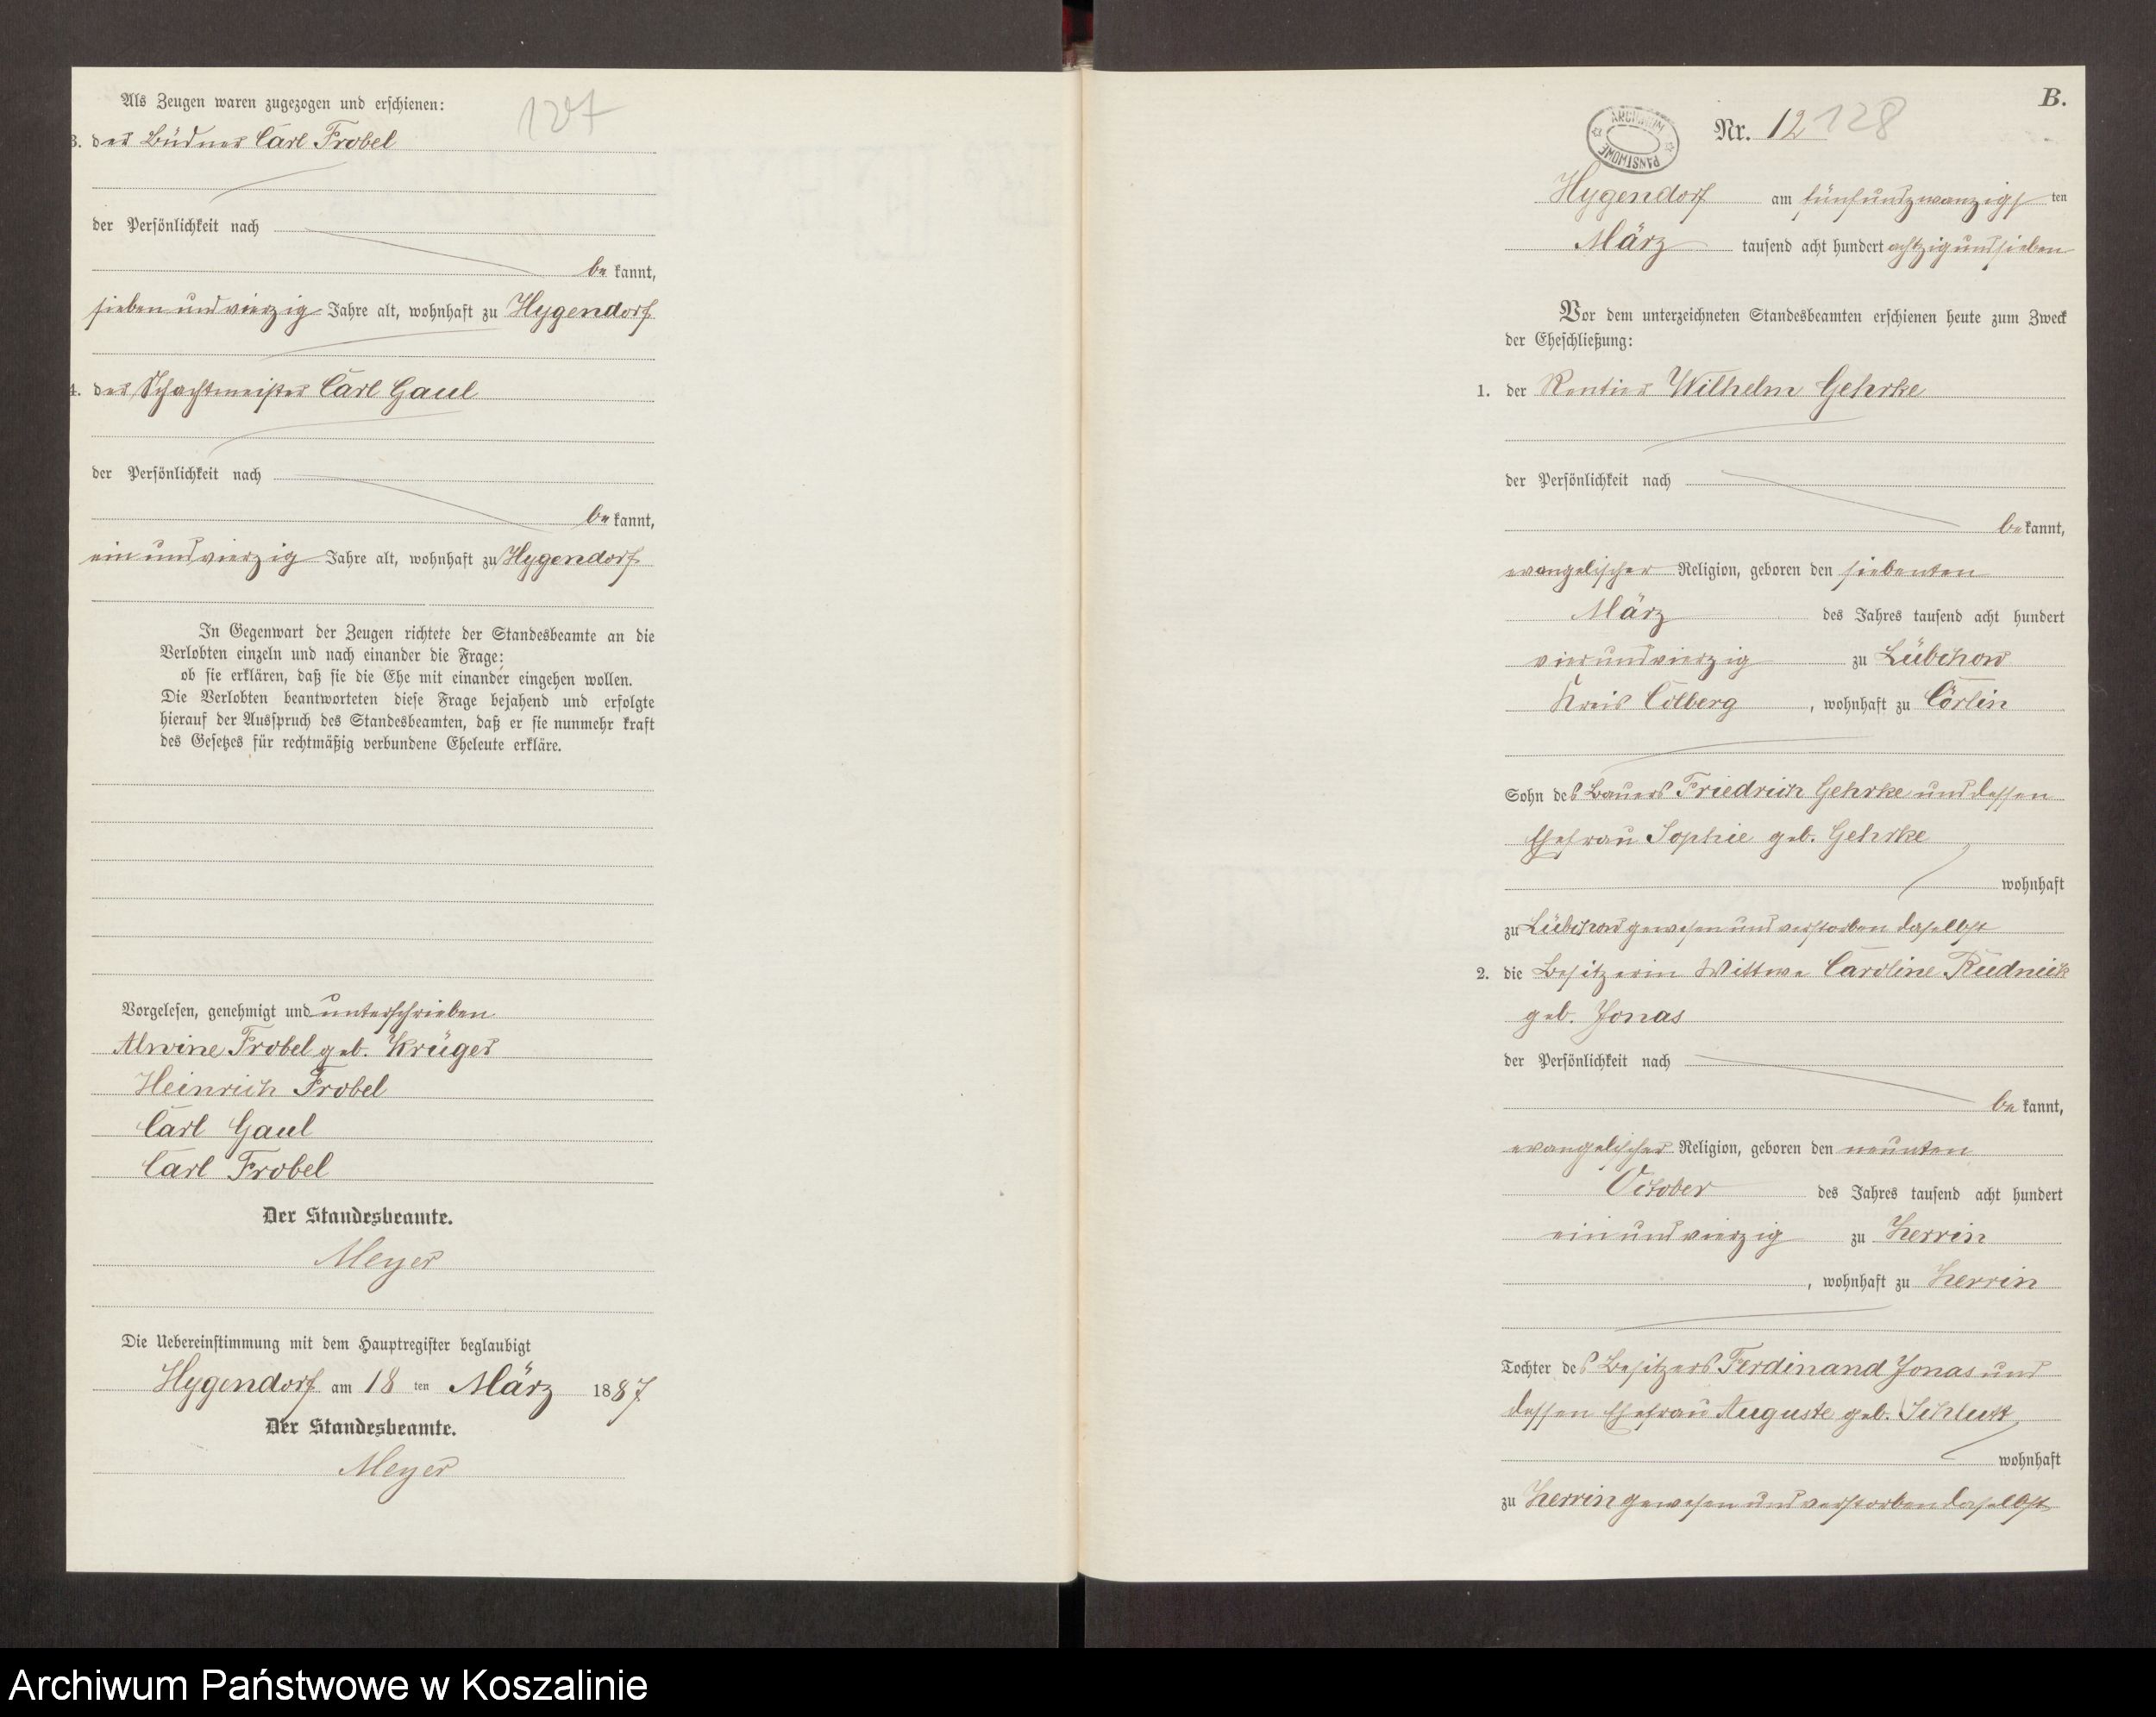 Als Zeugen waren zugezogen und erschienen:
127
3. der Büdner Carl Frobel
der Persönlichkeit nach
be kannt,
sieben und vierzig Jahre alt, wohnhaft zu Hygendorf
4. der Schachtmeister Carl Gaul
der Persönlichkeit nach
be kannt,
ein und vierzig Jahre alt, wohnhaft zu Hygendorf
In Gegenwart der Zeugen richtete der Standesbeamte an die
Verlobten einzeln und nach einander die Frage:
ob sie erklären, daß sie die Ehe mit einander eingehen wollen.
Die Verlobten beantworteten diese Frage bejahend und erfolgte
hierauf der Ausspruch des Standesbeamten, daß er sie nunmehr kraft
des Gesetzes für rechtmäßig verbundene Eheleute erkläre.
Vorgelesen, genehmigt und unterschrieben
Alwine Frobel geb. Krüger
Heinrich Frobel
Carl Gaul
Carl Frobel
Der Standesbeamte.
Meyer
Die Uebereinstimmung mit dem Hauptregister beglaubigt
Hygendorf am 18 ten März 1887
Der Standesbeamte.
Meyer
B.
ARCHIWUM PAŃSTWOWE
Nr. 12 128
Hygendorf am fünfundzwanzigs ten
März tausend acht hundert achtzig und sieben
Vor dem unterzeichneten Standesbeamten erschienen heute zum Zweck
der Eheschließung:
1. der Rentier Wilhelm Gehrke
der Persönlichkeit nach
be kannt,
evangelischer Religion, geboren den siebenten
März des Jahres tausend acht hundert
vier und vierzig zu Lübchow
Kreis Colberg, wohnhaft zu Cörlin
Sohn des Bauers Friedrich Gehrke und dessen
Ehefrau Sophie geb. Gehrke
wohnhaft
zu Lübchow gewesen und verstorben daselbst
2. die Besitzerin Wittwe Caroline Rudnick
geb. Jonas
der Persönlichkeit nach
be kannt,
evangelischer Religion, geboren den neunten
October des Jahres tausend acht hundert
ein und vierzig zu Zerrin
, wohnhaft zu Zerrin
Tochter des Besitzers Ferdinand Jonas und
dessen Ehefrau Auguste geb.
wohnhaft
zu Zerrin gewesen und verstorben daselbst
Archiwum Państwowe w Koszalinie